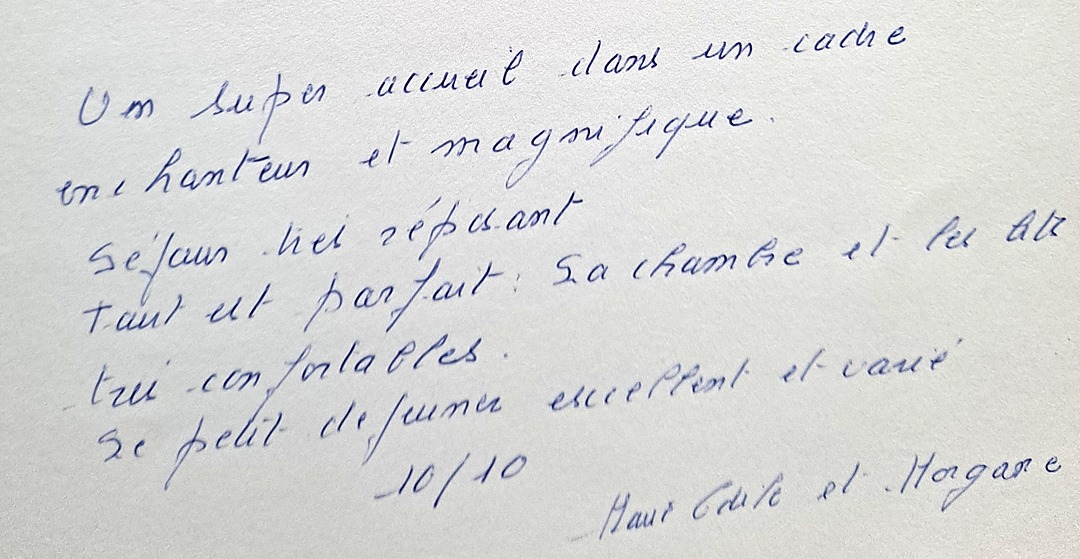 Un super accueil dans un cadre
enchanteur et magnifique.
Séjour très réposant
Tout est parfait : La chambre et les lits
très confortables.
Le petit dejeuner excellent et varié
10/10
Marie Edith et Morgane